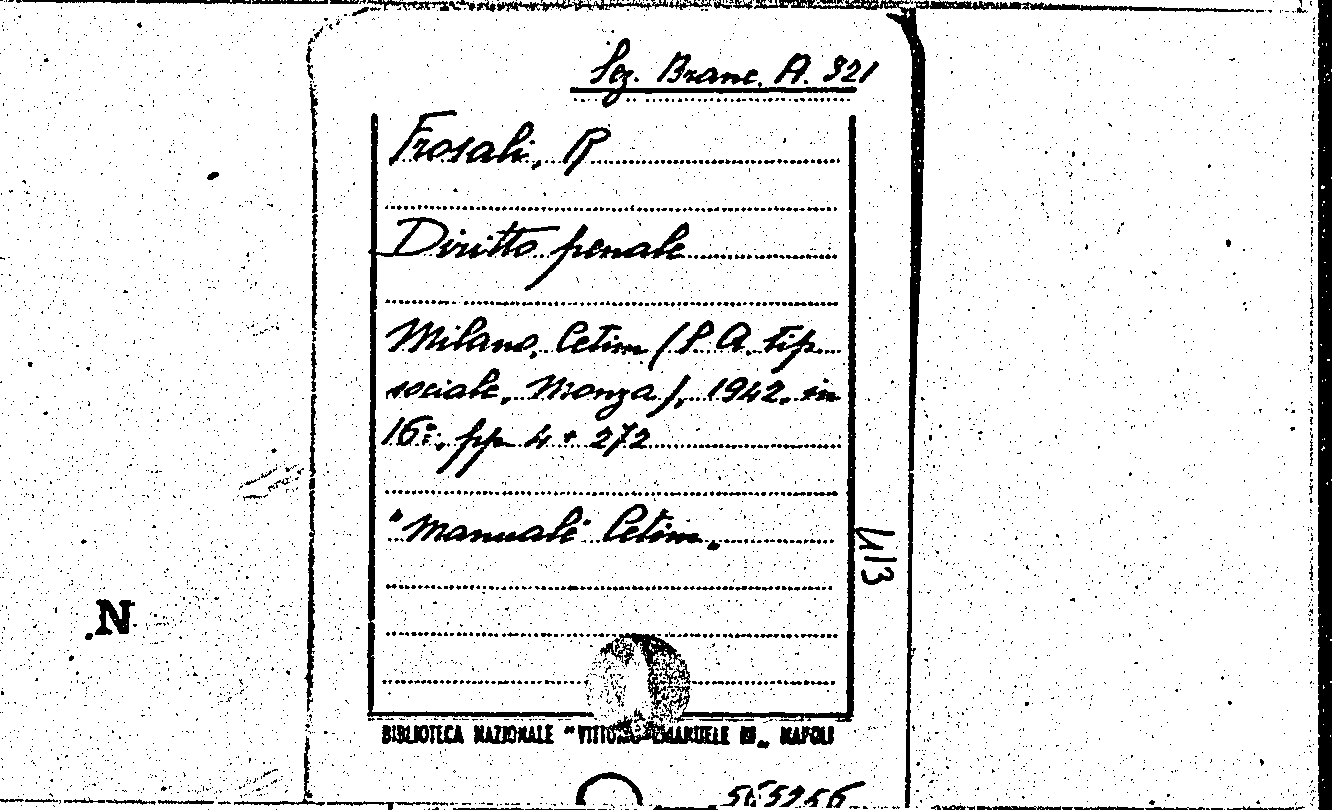 Sez. Branc. A. 321
Frosali, R
Diritto penale
Milano, Cetim (S. A. tip.
sociale, Monza), 1942, in
16°, pp 4 + 272
"Manuali" Cetim.
413
N
BIBLIOTECA NAZIONALE "VITTORIO EMANUELE III" NAPOLI